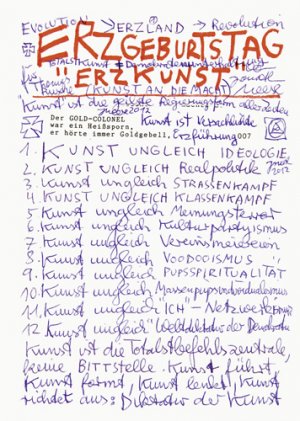 EVOLUTION → ERZLAND → Revolution
ERZGEBURTSTAG
Totalstkunst
"ERZKUNST"
für
KUNST AN DIE MACHT
"Kunst" ist die
Der GOLD-COLONEL
war ein Heißsporn,
er hörte immer Goldgebell,
Kunst ist Verschiedene
Erzführung 007
1. KUNST UNGLEICH IDEOLOGIE
2. KUNST UNGLEICH Realpolitik
2012
3. Kunst ungleich STRASSENKAMPF
4. KUNST UNGLEICH KLASSENKAMPF
5 Kunst ungleich Meinungsterror
6. Kunst ungleich
7 Kunst ungleich Vereinsmeiereien
8. Kunst ungleich VOODOOISMUS
9. Kunst ungleich PUPSSPIRITUALITÄT
10. Kunst ungleich Massenpupsindividualismus
11. Kunst ungleich "ICH" - Netzwerk
12 Kunst ungleich Weltdiktatur der Demokratie
Kunst ist die Totalstbefehlszentrale,
keine BITTSTELLE. Kunst führt,
Kunst formt, Kunst lenkt, Kunst
richtet aus: Diktatur der Kunst